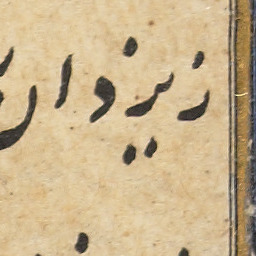 زیزدان